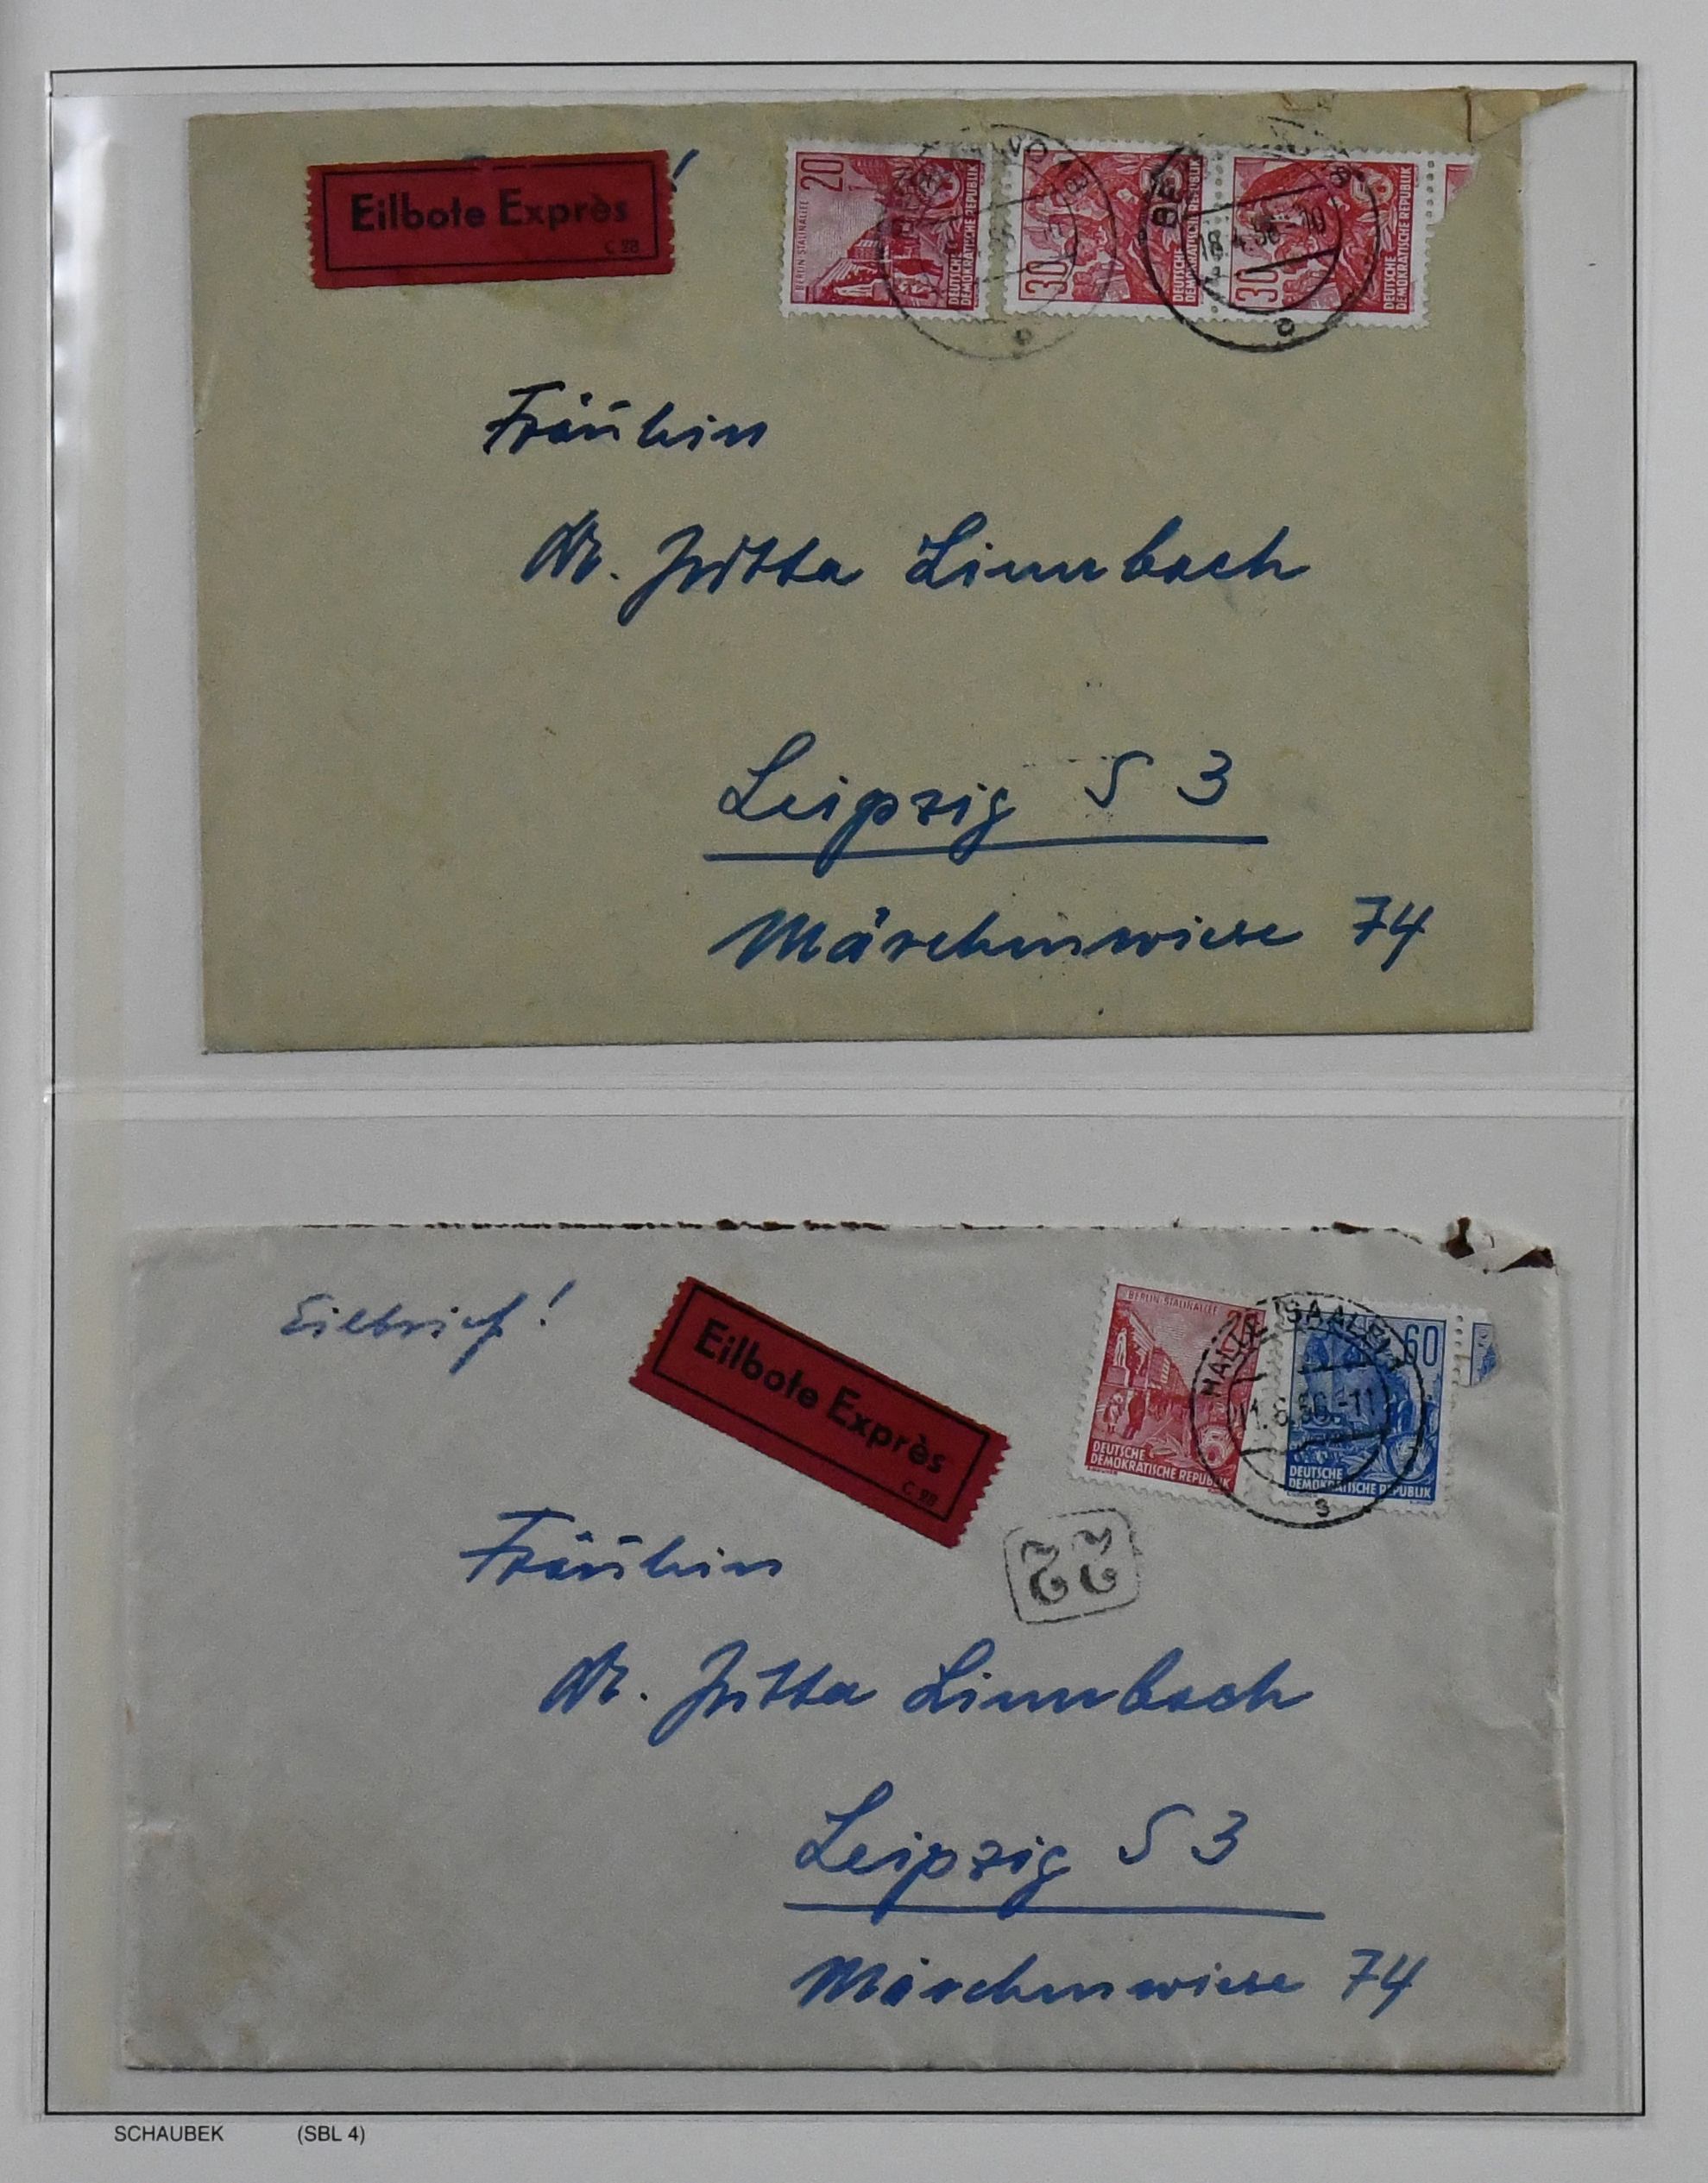 Eilbote Exprès
C 98
!
20
BERLIN-STALINALLEE
DEUTSCHE
DEMOKRATISCHE REPUBLIK
30
DEUTSCHE
DEMOKRATISCHE REPUBLIK
30
DEUTSCHE
DEMOKRATISCHE REPUBLIK
18.4.56-10
Fräulein
Dr. Jutta Limbach
Leipzig S 3
Märchenwiese 74
Eilbrief!
Eilbote Exprès
C 98
BERLIN-STALINALLEE
20
DEUTSCHE
DEMOKRATISCHE REPUBLIK
60
DEUTSCHE
DEMOKRATISCHE REPUBLIK
HALLE (SAALE)
.6.56.-11
s
22
Fräulein
Dr. Jutta Limbach
Leipzig S 3
Märchenwiese 74
SCHAUBEK (SBL 4)